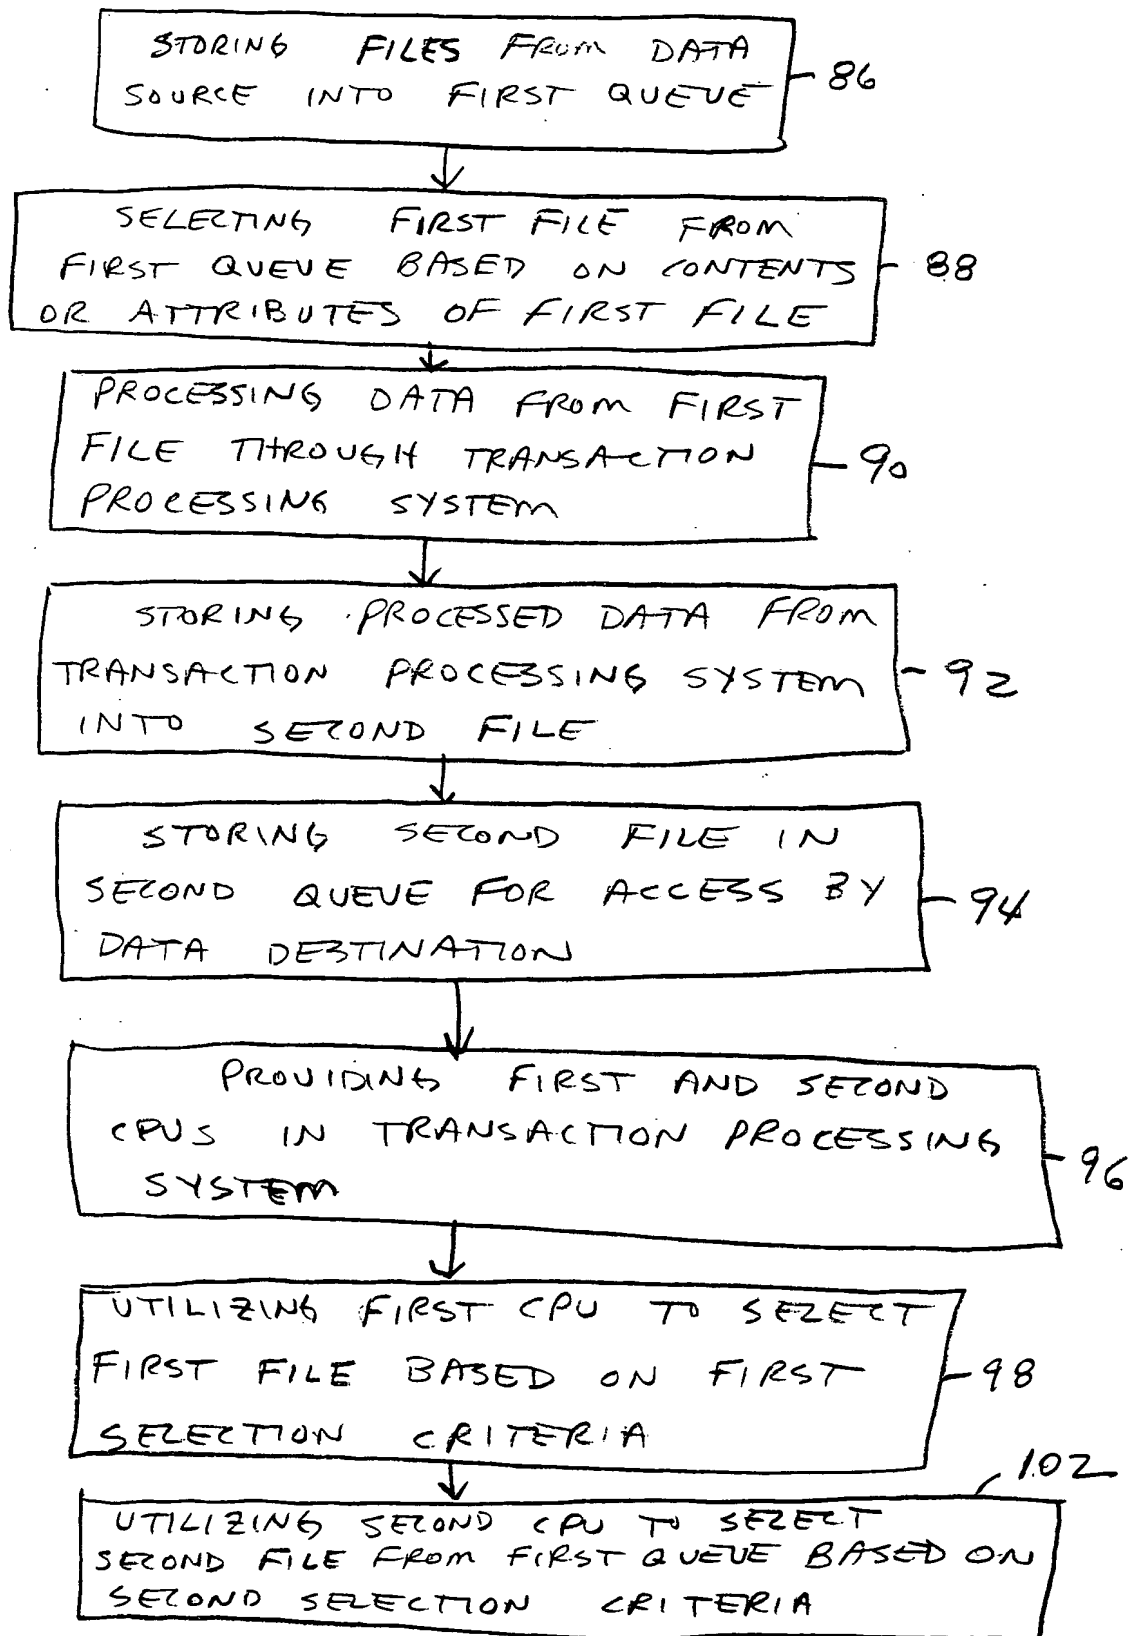 STORING FILES FROM DATA
SOURCE INTO FIRST QUEUE
86
SELECTING FIRST FILE FROM
FIRST QUEUE BASED ON CONTENTS
OR ATTRIBUTES OF FIRST FILE
88
PROCESSING DATA FROM FIRST
FILE THROUGH TRANSACTION
PROCESSING SYSTEM
90
STORING PROCESSED DATA FROM
TRANSACTION PROCESSING SYSTEM
INTO SECOND FILE
92
STORING SECOND FILE IN
SECOND QUEUE FOR ACCESS BY
DATA DESTINATION
94
PROVIDING FIRST AND SECOND
CPUS IN TRANSACTION PROCESSING
SYSTEM
96
UTILIZING FIRST CPU TO SELECT
FIRST FILE BASED ON FIRST
SELECTION CRITERIA
98
102
UTILIZING SECOND CPU TO SELECT
SECOND FILE FROM FIRST QUEUE BASED ON
SECOND SELECTION CRITERIA